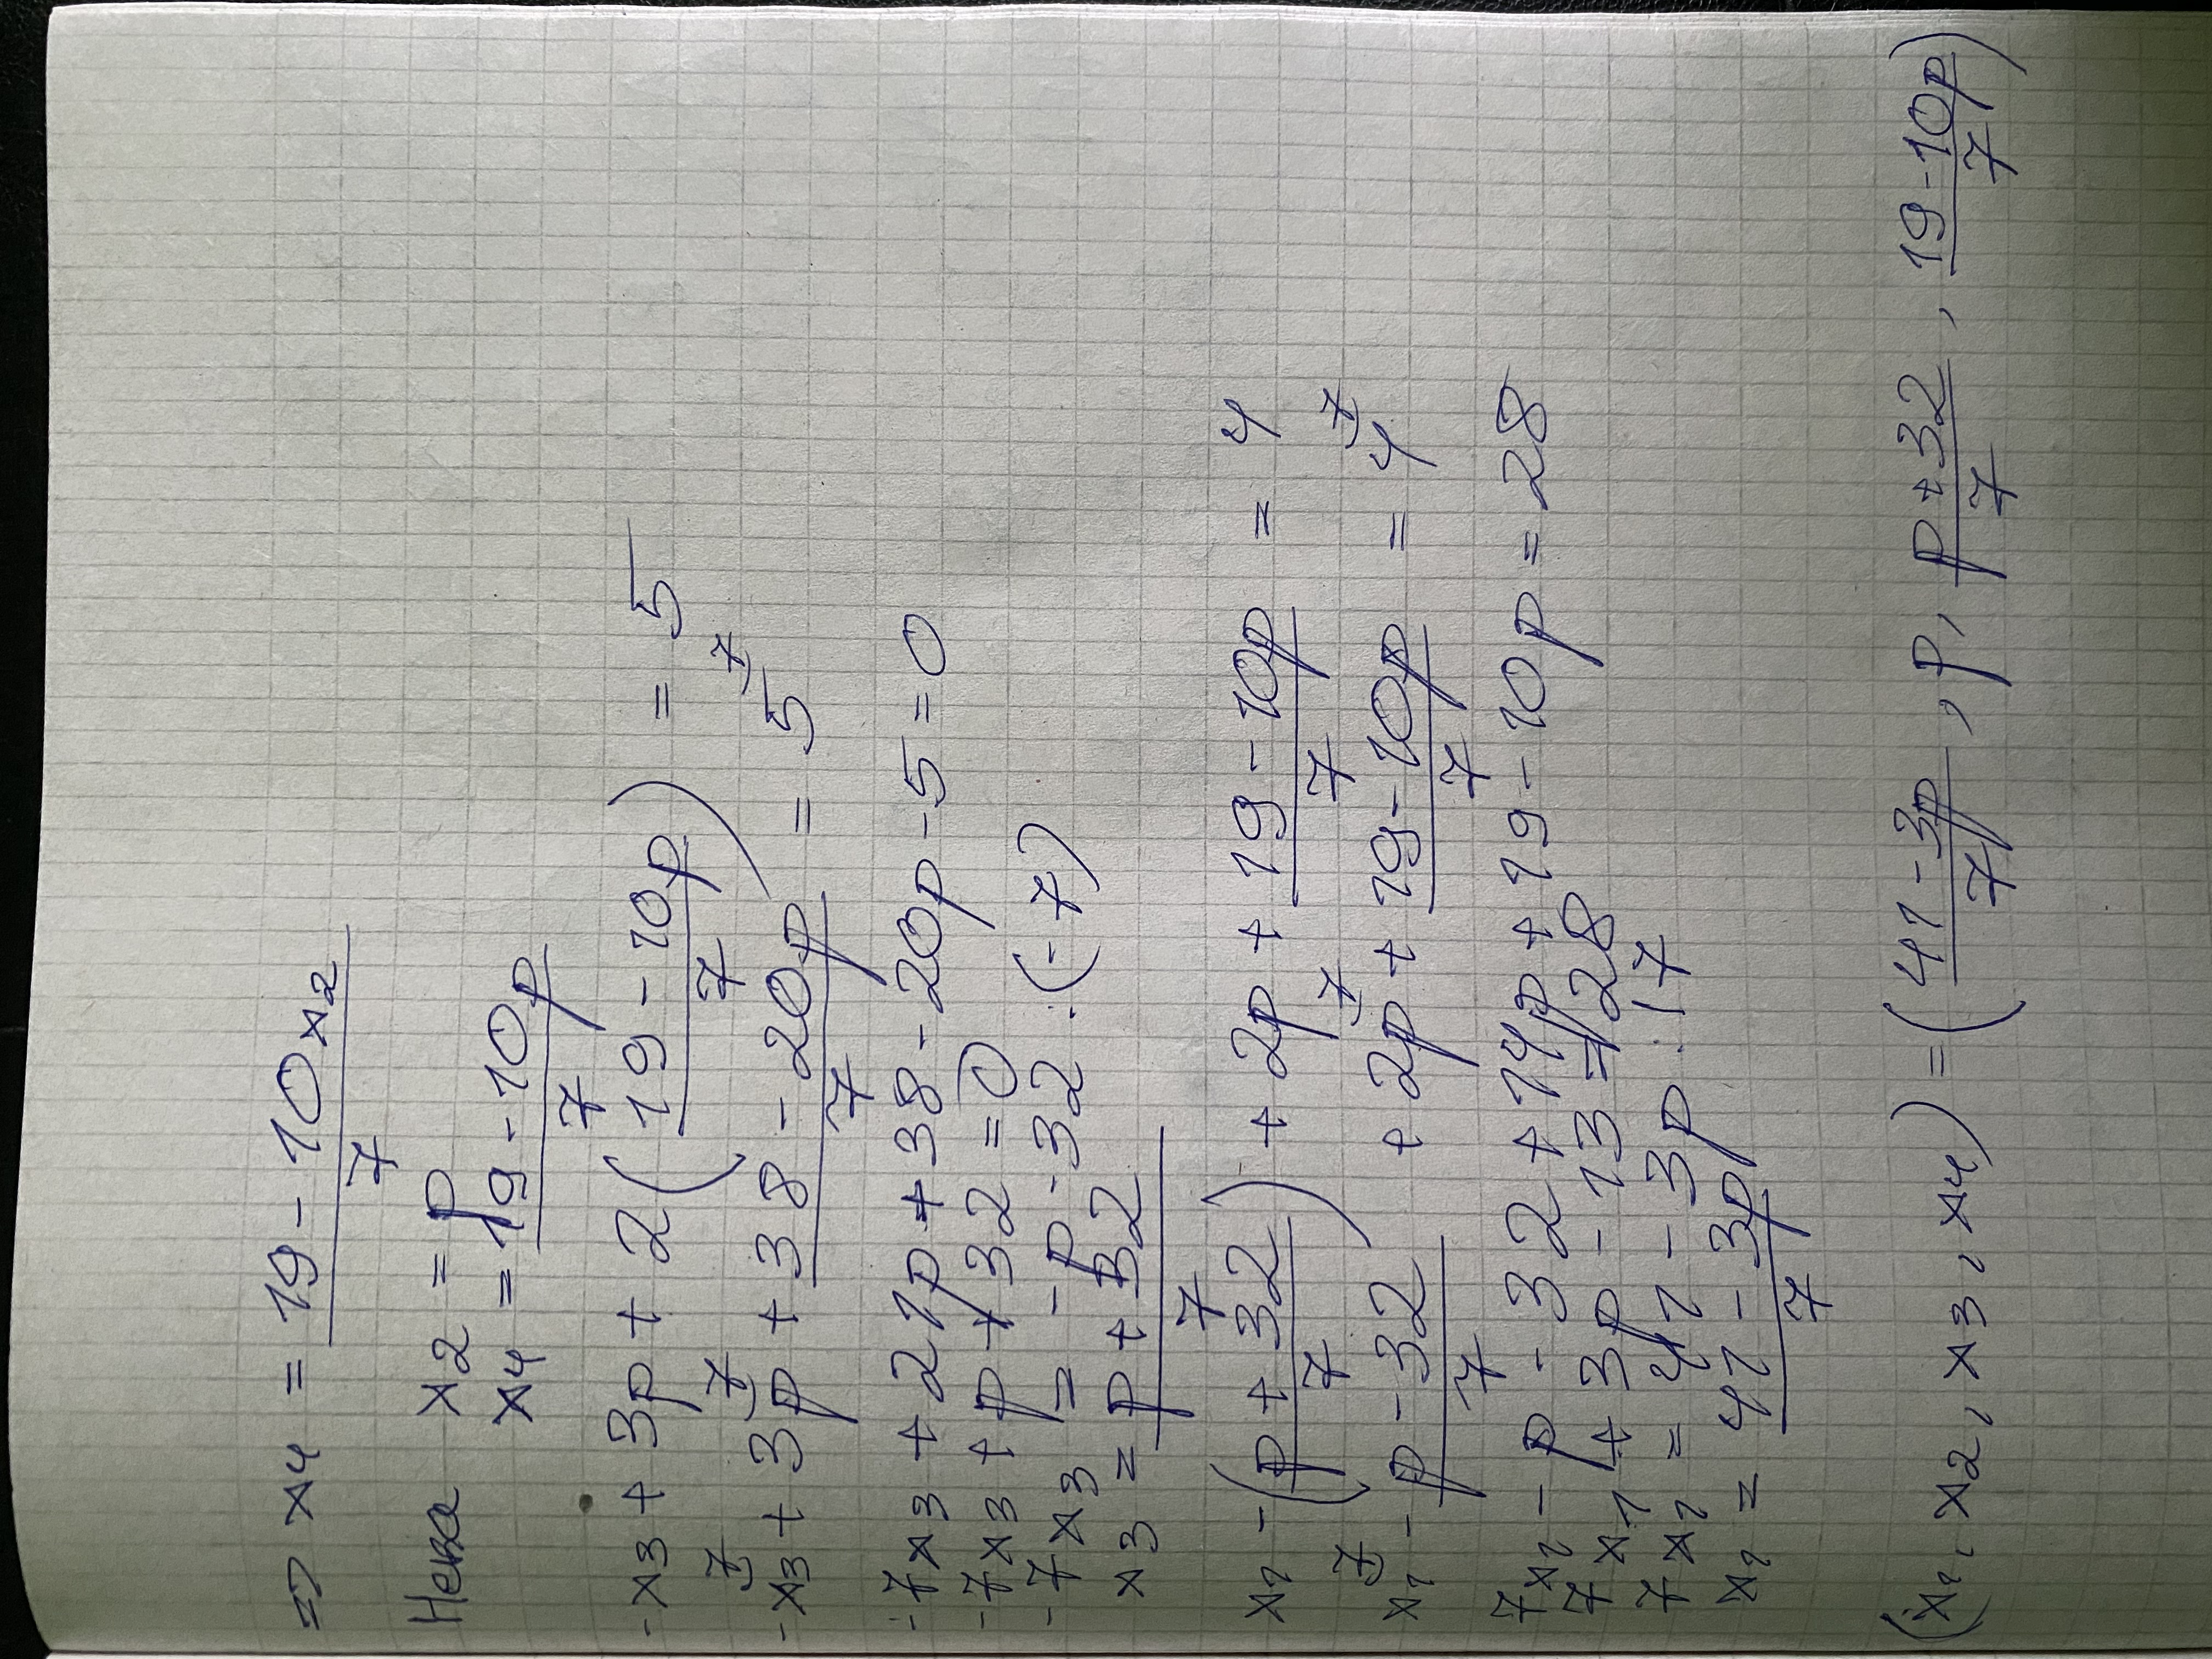 => x4 = (19 - 10x2)/7
Нека x2 = p
x4 = (19 - 10p)/7
-x3 + 3p + 2((19 - 10p)/7) = 5
-x3 + 3p + (38 - 20p)/7 = 5
-7x3 + 21p + 38 - 20p - 5 = 0
-7x3 + p + 32 = 0
-7x3 = -p - 32 :(-7)
x3 = (p + 32)/7
x1 - ((p + 32)/7) + 2p + (19 - 10p)/7 = 4
x1 - (p - 32)/7 + 2p + (19 - 10p)/7 = 4
7x1 - p - 32 + 14p + 19 - 10p = 28
7x1 + 3p - 13 = 28
7x1 = 41 - 3p :17
x1 = (41 - 3p)/7
(x1, x2, x3, x4) = ((41 - 3p)/7, p, (p + 32)/7, (19 - 10p)/7)